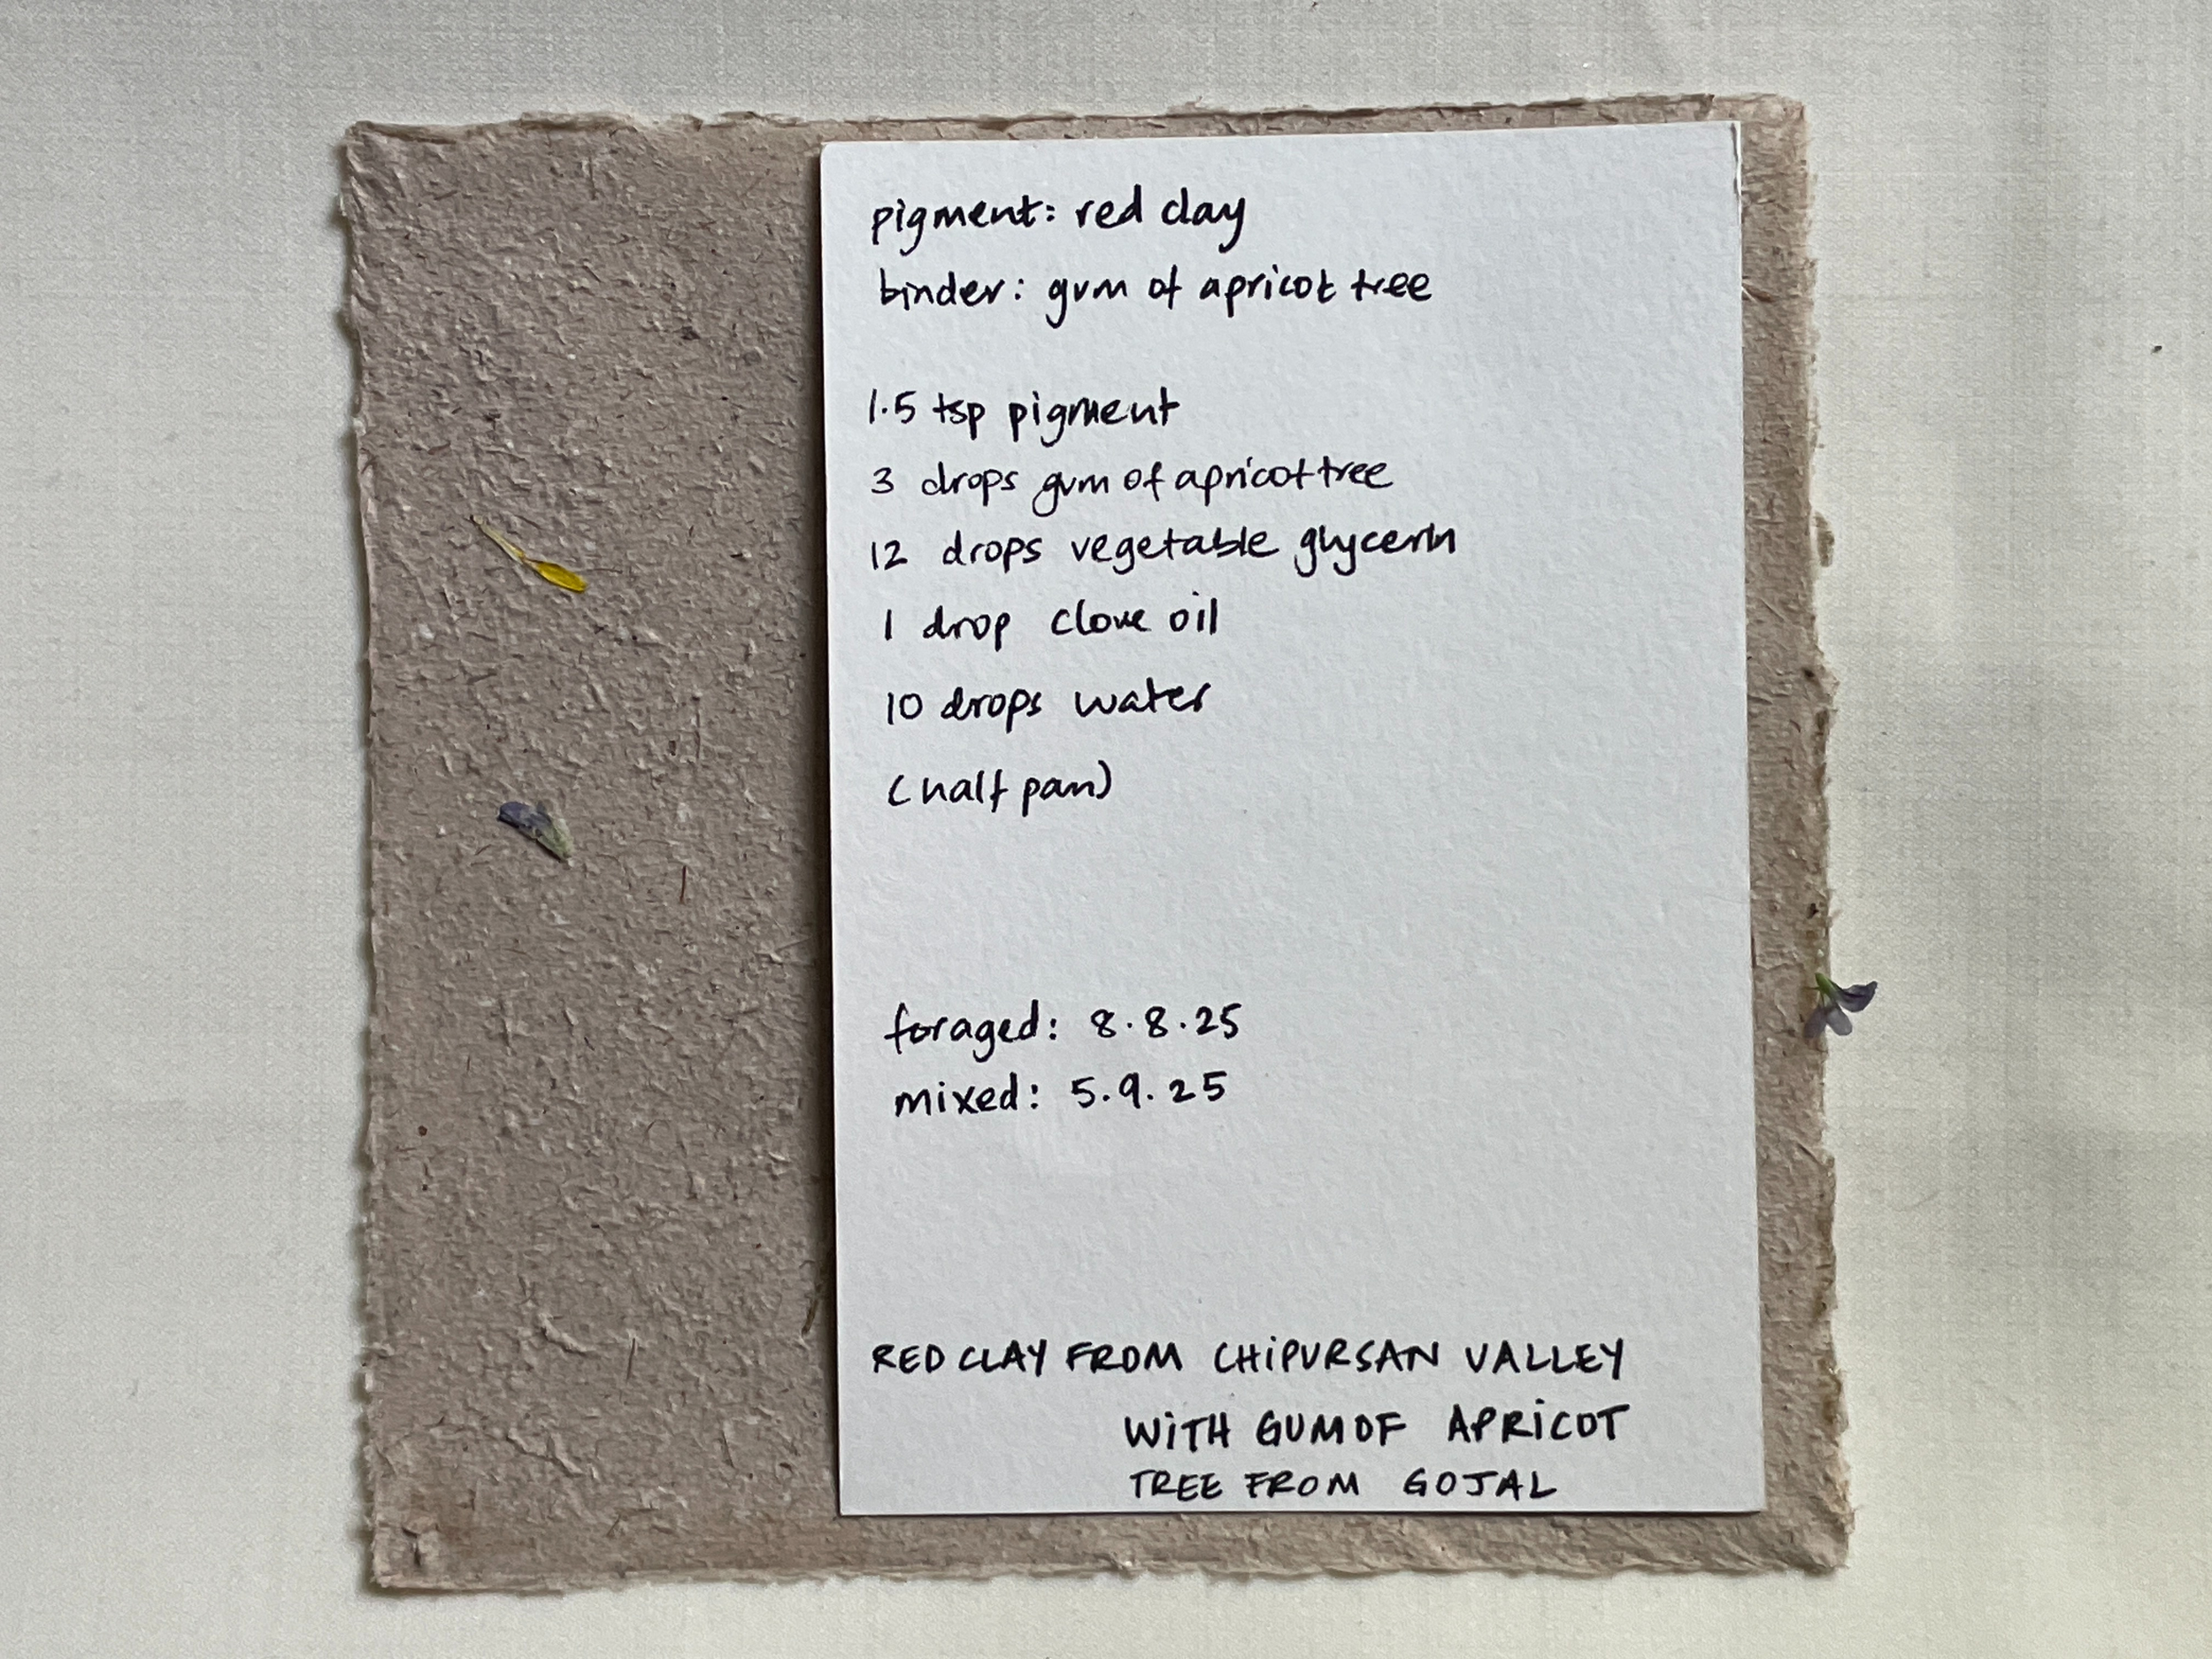 pigment: red clay
binder: gum of apricot tree
1.5 tsp pigment
3 drops gum of apricot tree
12 drops vegetable glycerin
1 drop clove oil
10 drops water
(half pan)
foraged: 8.8.25
mixed: 5.9.25
RED CLAY FROM CHIPURSAN VALLEY
WITH GUM OF APRICOT
TREE FROM GOJAL